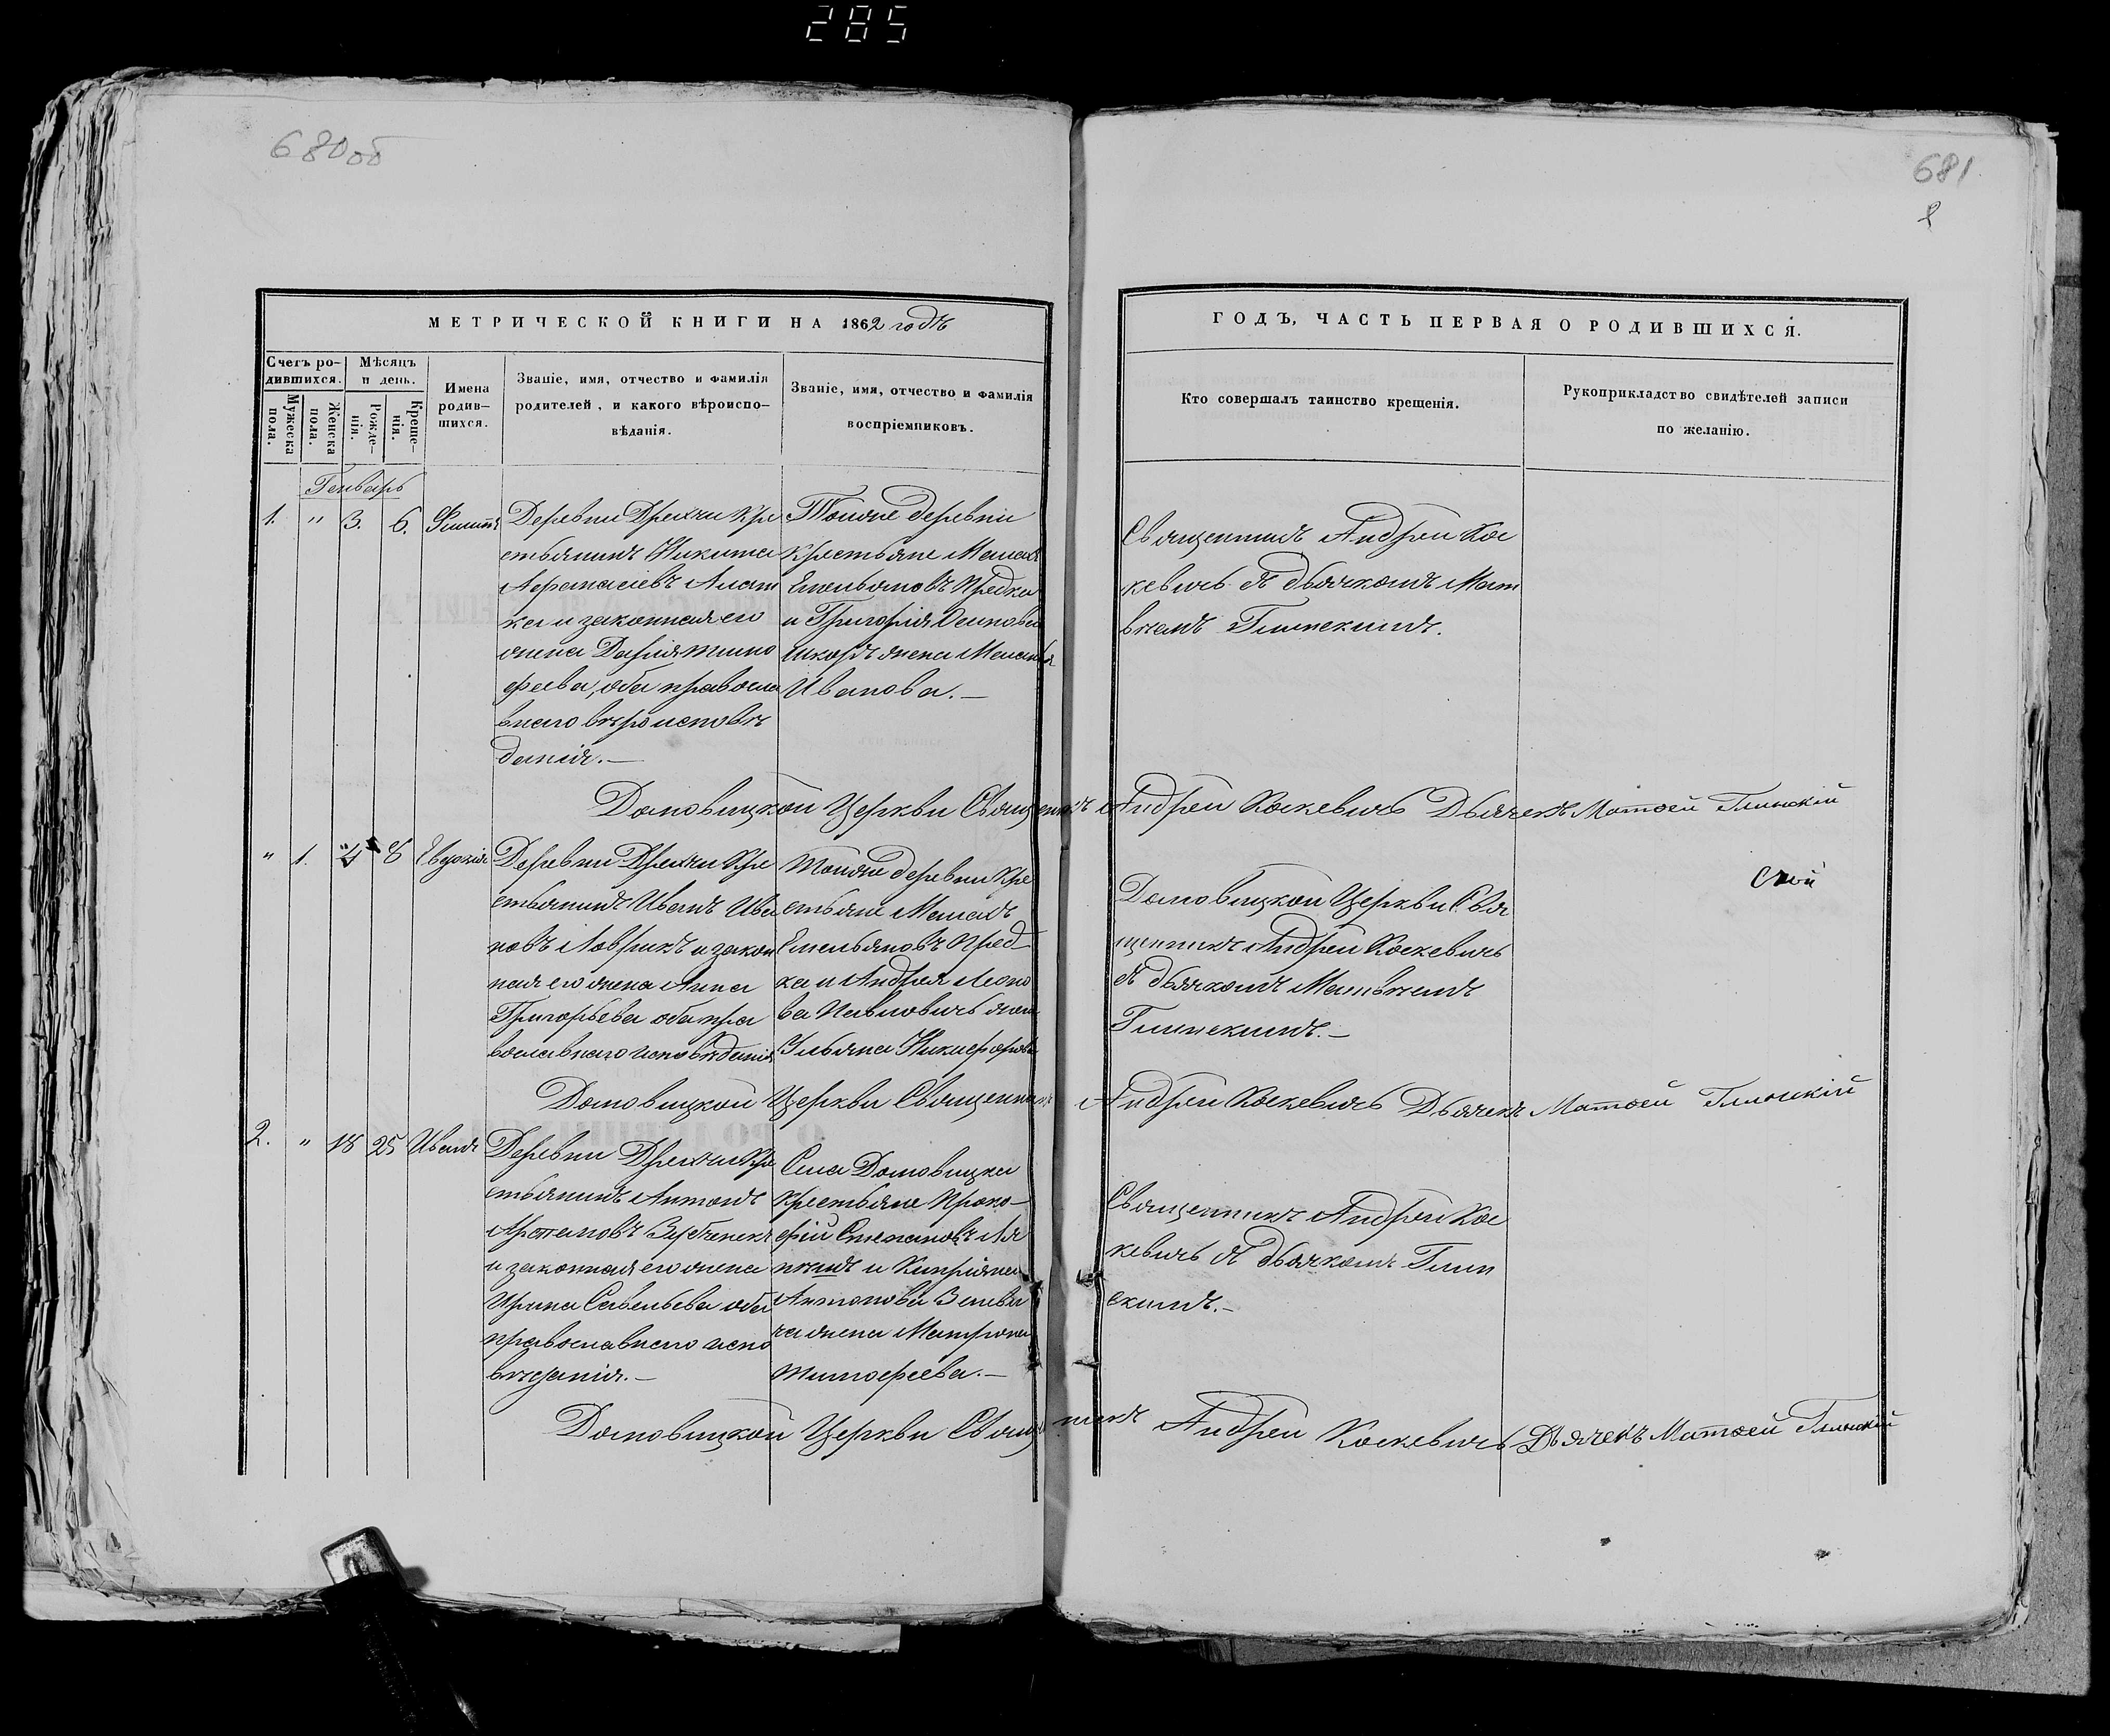 285
680об
681
МЕТРИЧЕСКОЙ КНИГИ НА 1862 годъ
ГОДЪ, ЧАСТЬ ПЕРВАЯ О РОДИВШИХСЯ.
Счетъ ро-
дившихся.
Мужеска
пола.
Женска
пола.
Мѣсяцъ
и день.
Рожде-
нія.
Креще-
нія.
Имена
родив-
шихся.
Званіе, имя, отчество и фамилія
родителей, и какого вѣроиспо-
вѣданія.
Званіе, имя, отчество и фамилія
воспріемниковъ.
Кто совершалъ таинство крещенія.
Рукоприкладство свидѣтелей записи
по желанію.
Генварь
1. " 3. 6. Филиппъ
Деревни Кре
стьянинъ Никита
ка и законная его
жена Дарія Тимо
феева, оба правосла
внаго вѣроисповѣ
данія.—
Тойже деревни
Крестьяне
Емельяновъ Предка
и Григорія
жена Меланія
Иванова.—
Священникъ Андрей Кос
кевичъ съ дьячкомъ Мат
вѣемъ Глинскимъ.
Домовицкой Церкви Священникъ Андрей Коскевичъ Дьячекъ Матвей Глинскій
" 1. 4 8 Евдокія
Деревни Кре
стьянинъ Иванъ Ива
новъ Лавринъ и закон
ная его жена Анна
Григорьева оба пра
вославнаго исповѣданія
Тойже деревни Кре
стьяне
Емельяновъ Пред
ка и Андрея Леоно
ва Павловичъ жена
Ульяна Никифорова
Домовицкой Церкви Свя
щенникъ Андрей Коскевичъ
съ дьячкомъ Матвѣемъ
Глинскимъ.—
Домовицкой Церкви Священникъ Андрей Коскевичъ Дьячекъ Матвей Глинскій
2. " 18 25 Иванъ
Деревни Кре
стьянинъ Антонъ
Артемовъ
и законная его жена
Ирина Савельева оба
православнаго испо
вѣданія.—
Села Домовицка
Крестьяне Проко-
фій Степановъ
и Кипріяна
Антонова
жена Матрона
Тимофеева.—
Священникъ Андрей Кос
кевичъ съ дьячкомъ Глин
скимъ.—
Домовицкой Церкви Священникъ Андрей Коскевичъ Дьячекъ Матвей Глинскій